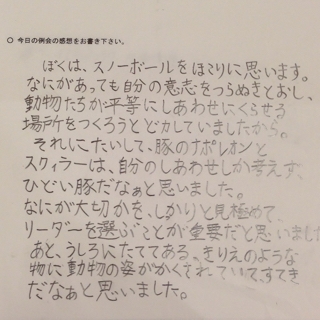 ○ 今日の例会の感想をお書き下さい。
ぼくは、スノーボールをほこりに思います。
なにがあっても自分の意志をつらぬきとおし、
動物たちが平等にしあわせにくらせる
場所をつくろうとどカしていましたから。
それにたいして、豚のナポレオンと
スクィラーは、自分のしあわせしか考えず、
ひどい豚だなぁと思いました。
なにが大切かを、しっかりと見極めて、
リーダーを選ぶことが重要だと思いました
あと、うしろにたててある、きりえのような
物に動物の姿がかくされていて、すてき
だなぁと思いました。